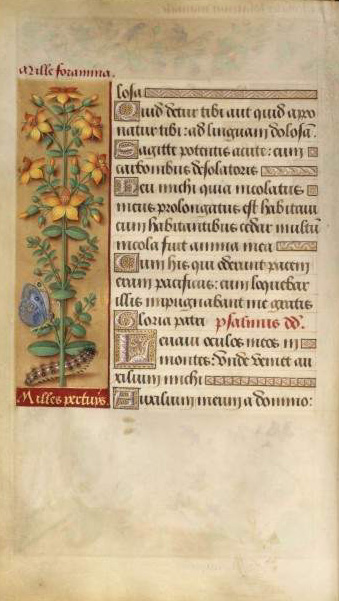 Mille foramina.
losa
Quid detur tibi aut quid apo
natur tibi: ad linguam dolosā.
Sagitte potentis acute: cum
carbonibus desolatoriis
Heu michi quia incolatus
meus prolongatus est habitaui
cum habitantibus cedar multū
incola fuit anima mea
Cum his qui oderunt pacem
eram pacificus: cum loquebar
illis impugnabant me gratis
Gloria patri psalmus dd.
Leuaui oculos meos in
montes: Vnde veniet au
xilium michi
Auxilium meum a domino:
Milles pertuys.